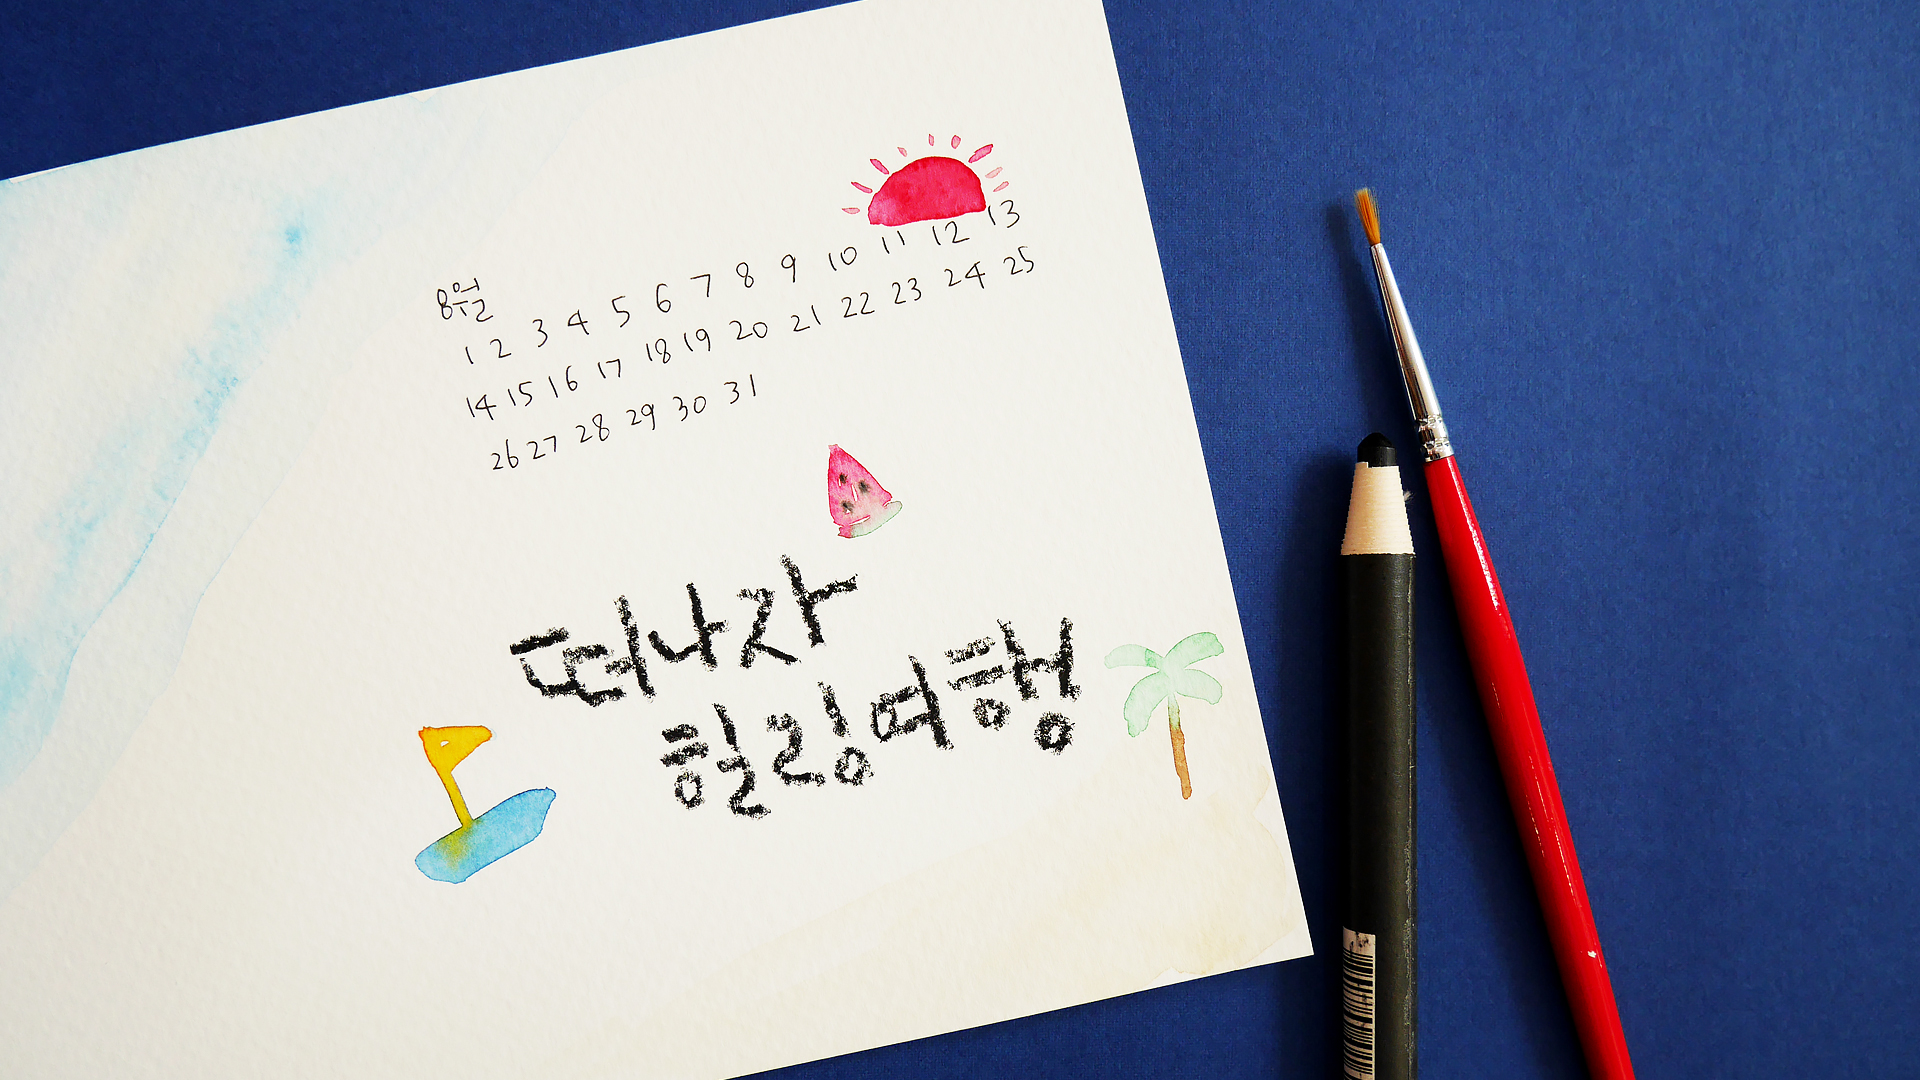 8월
1 2 3 4 5 6 7 8 9 10 11 12 13
14 15 16 17 18 19 20 21 22 23 24 25
26 27 28 29 30 31
떠나자
힐링여행